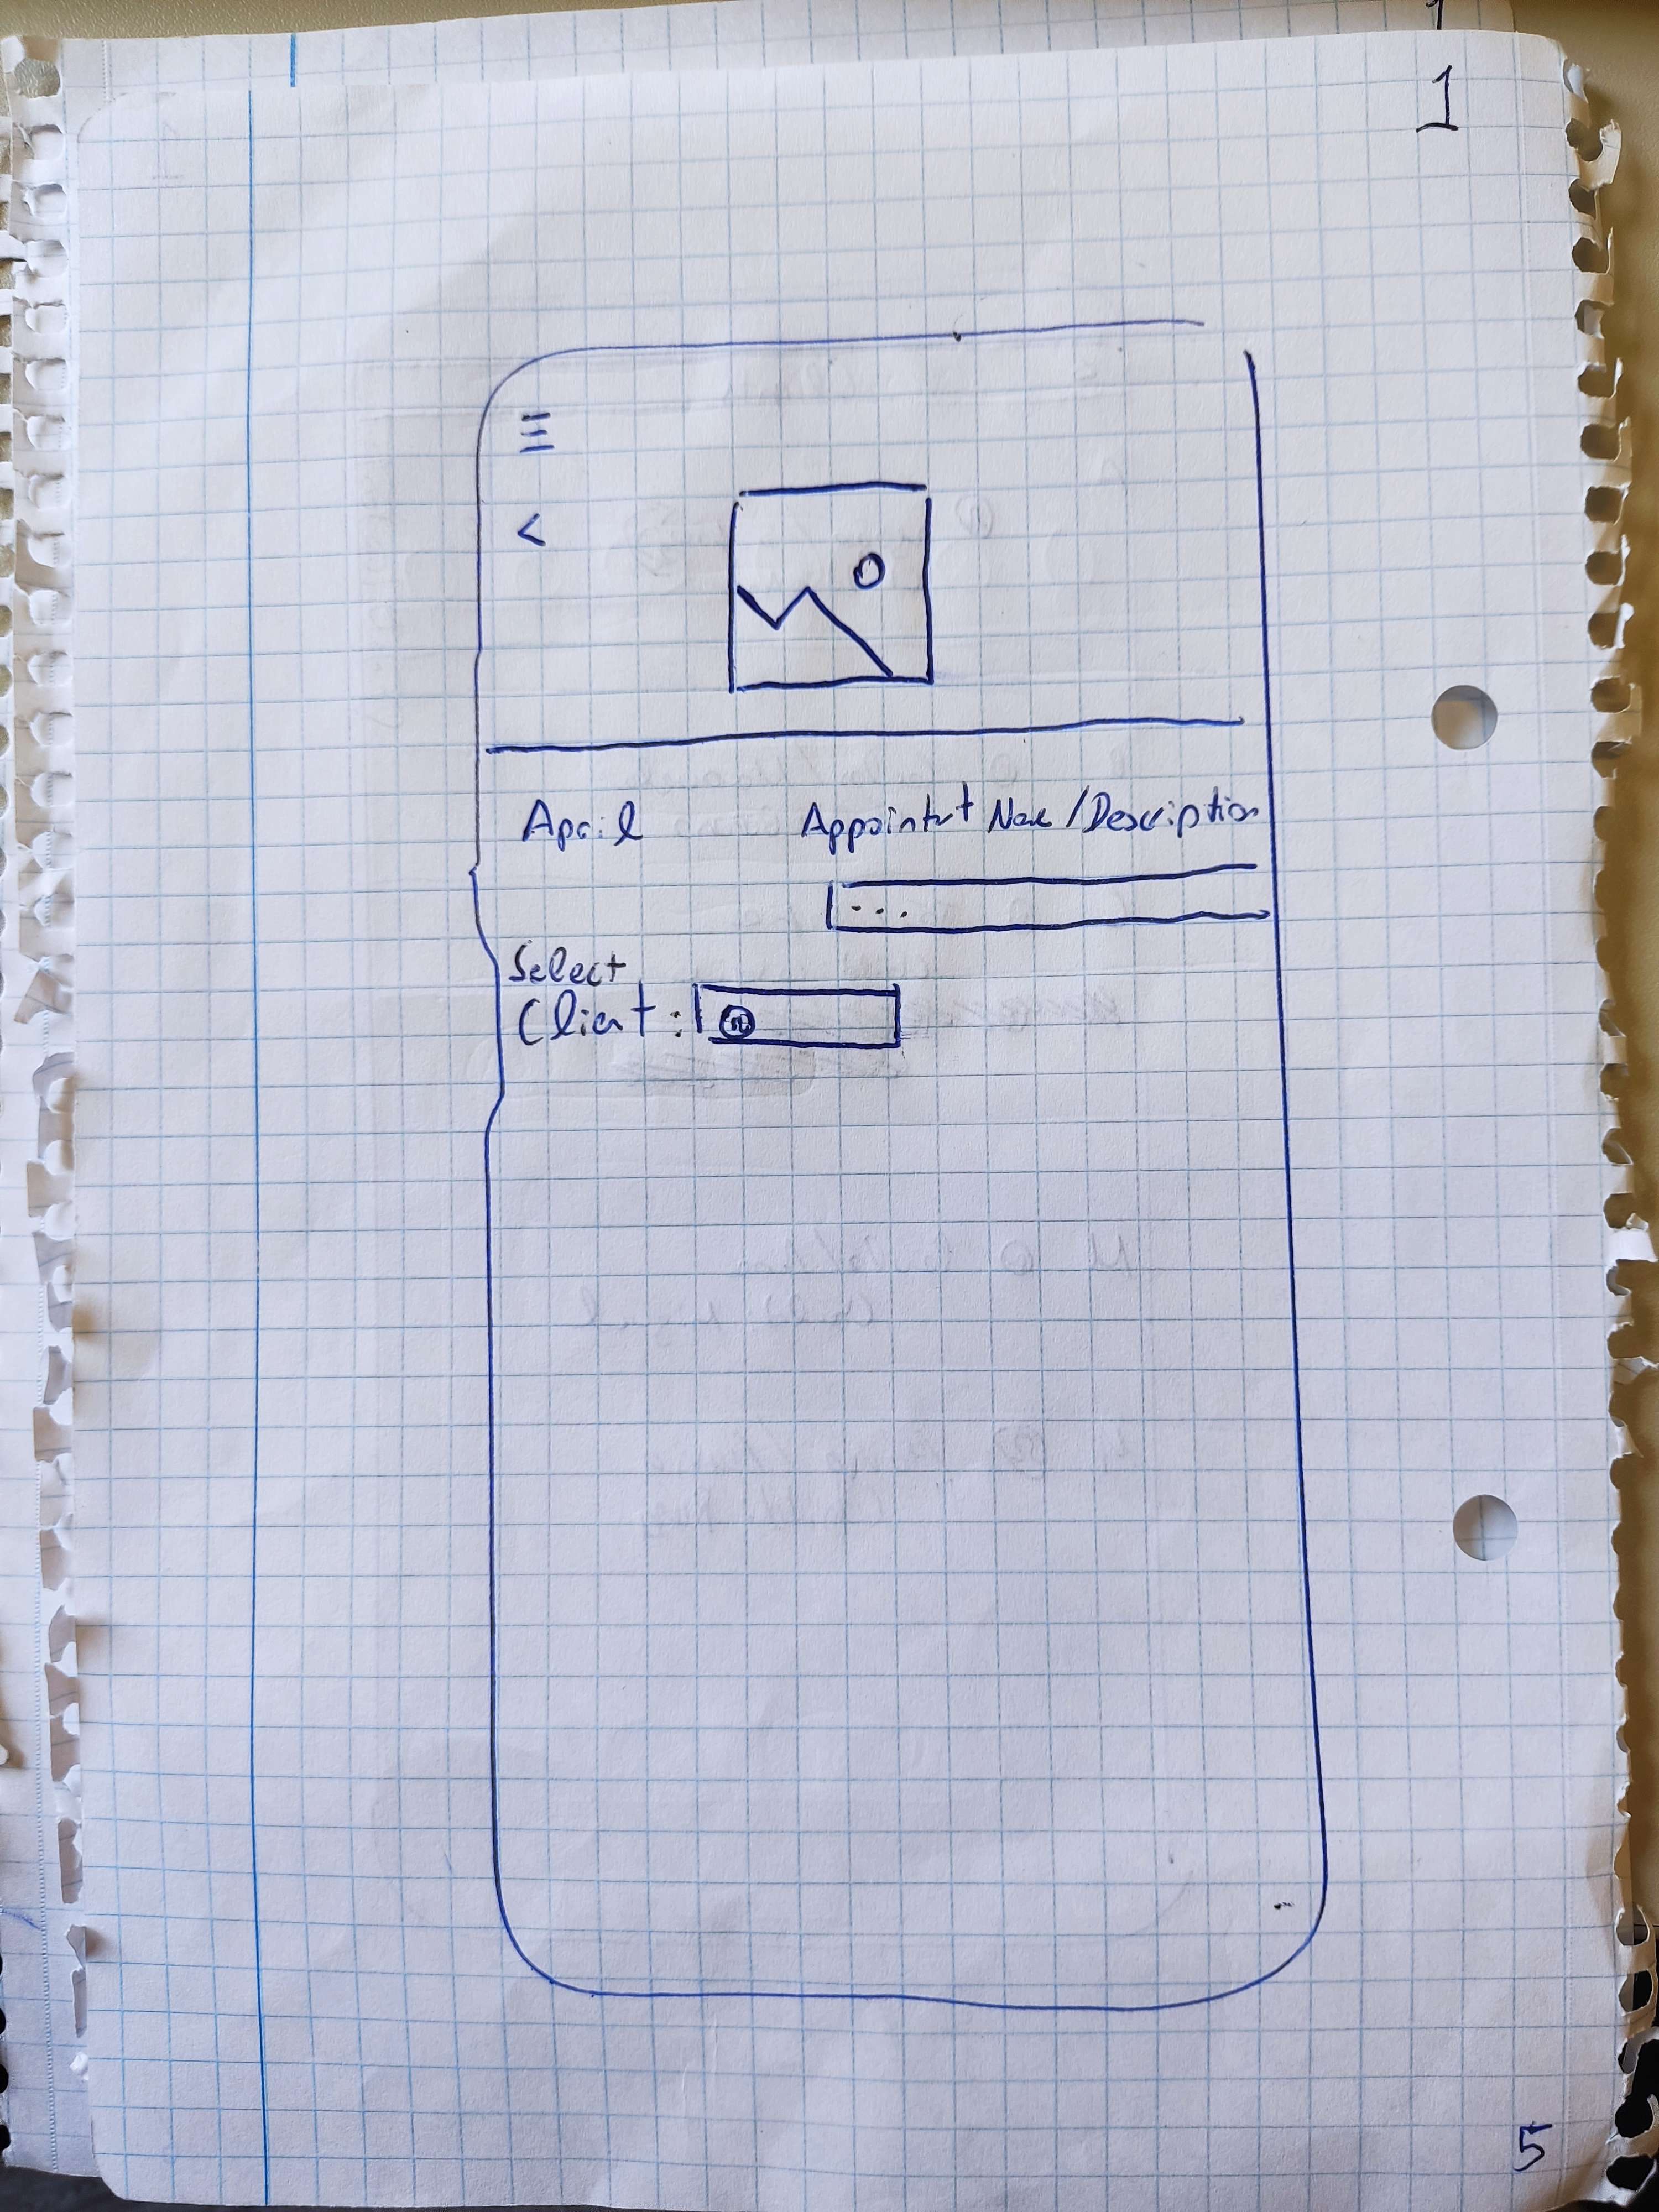 1
1
<
April
Appointmt Name/Description
...
Select
Client:
5